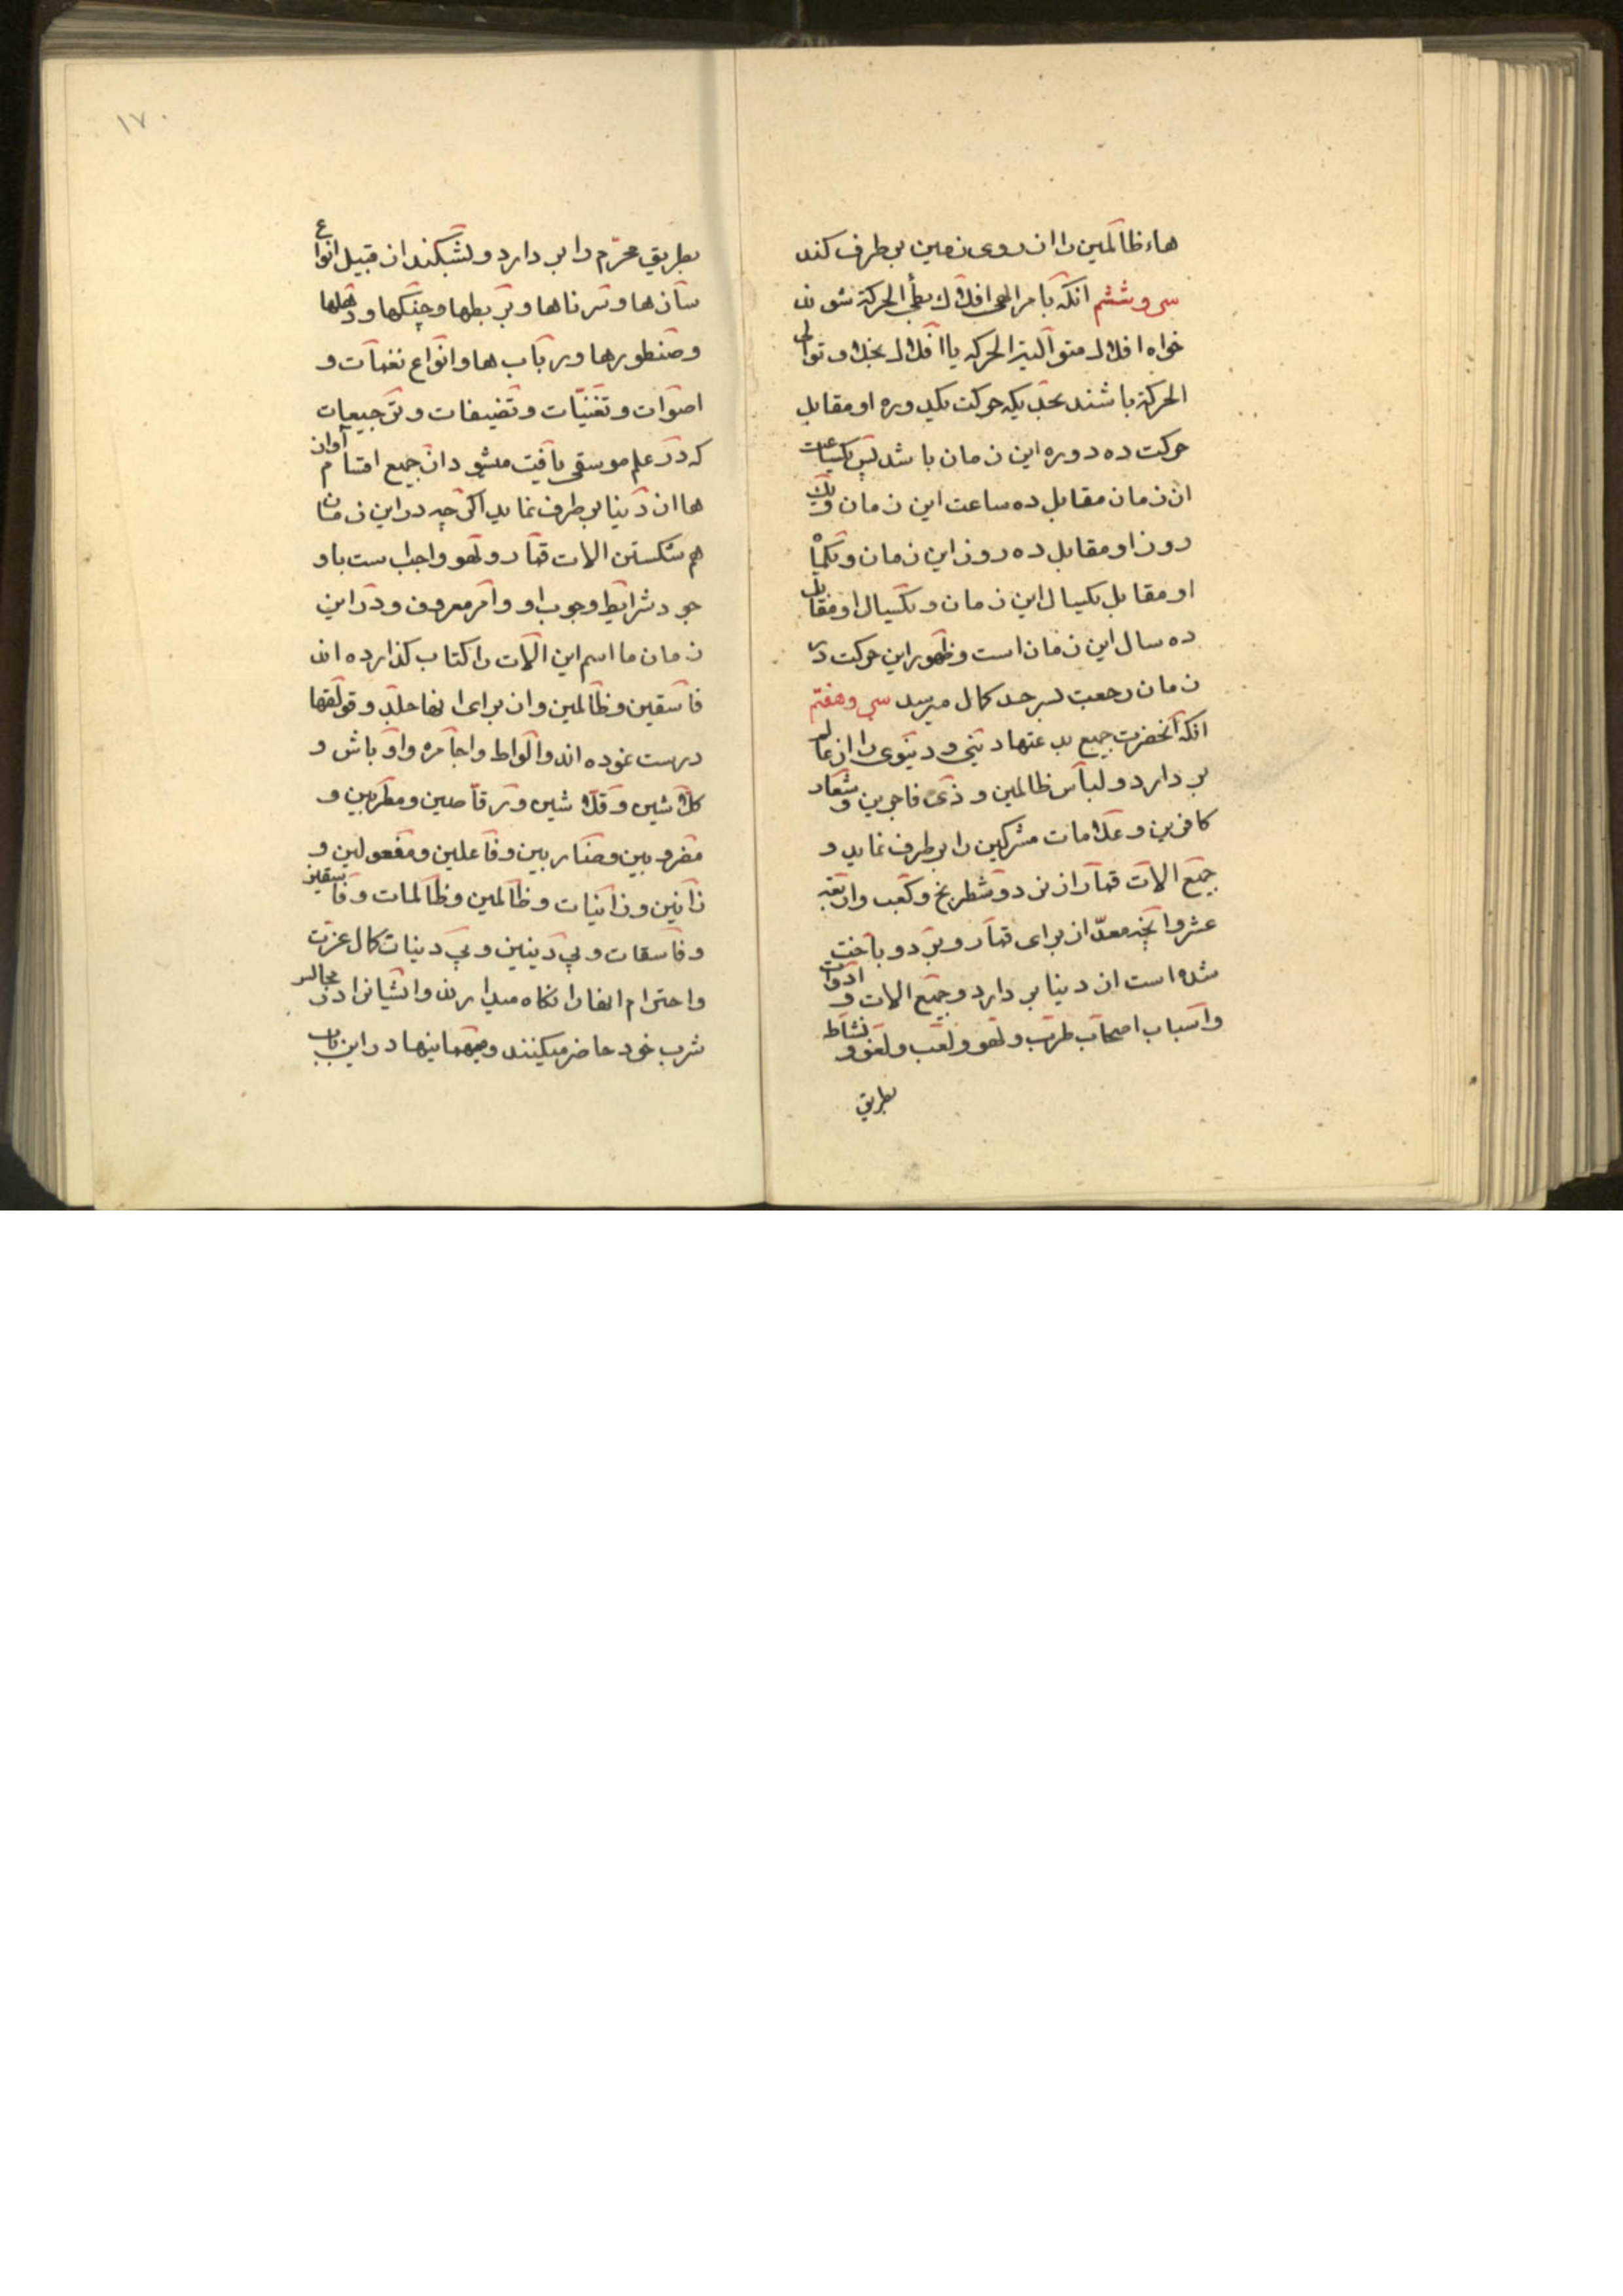 هاء ظالمین را از روی زمین بر طرف کند
سی و ششم انکه بامر الهی افلاک بطئ الحرکة شوند
خواه افلاک متوالیة الحرکه یا افلاک بخلاف توالی
الحرکة باشند بحدیکه حرکت یکدوره او مقابل
حرکت ده دوره این زمان باشد پس یکساعت
ان زمان مقابل ده ساعت این زمان و یک
روز او مقابل ده روز این زمان و یکماه
او مقابل یکسال این زمان و یکسال او مقابل
ده سال این زمان است و ظهور این حرکت در
زمان رجعت بسر حد کمال میرسد سی و هفتم
انکه انحضرت جمیع بدعتهاد ینی و دنیوی را از عالم
بر دارد و لباس ظالمین و ذی فاجرین و شعار
کافرین و علامات مشرکین را بر طرف نماید و
جمیع الات قمار از نرد و شطرنج و کعب و اربعه
عشر و انچه معدّ از برای قمار و برد و باخت
شده است از دنیا بر دارد و جمیع الات و ادوات
و اسباب اصحاب طرب و لهو و لعب و لغو و نشاط
بطریق
١٧٠
بطریق محرّم را بر دارد و بشکند از قبیل انواع
سازها و سرناها و بربطها و چنگها و دهلها
و صنطورها و رباب ها و انواع نغمات و
اصوات و تغنیّات و تضیفات و ترجیعات
که در علم موسقی یافت میشود از جمیع اقسام آوازه
ها از دنیا بر طرف نماید اکرچه در این زمان
هم شکستن الات قمار و لهو واجب ست باو
جود شرایط وجوب او و امر معروف و در این
زمان ما اسم این الات را کتاب کذارده اند
فاسقین و ظالمین و از برای انها جلد و قولقها
درست نموده اند و الواط و اجامره و اوباش و
کلاشین و قلاشین و رقاصین و مطربین و
مضروبین و ضاربین و فاعلین و مفعولین و
زانین و زانیات و ظالمین و ظالمات و فاسقین
و فاسقات و بی دینین و بی دینات کمال عزت
و احترام انها را نکاه میدارند و ایشانرا در مجالس
شرب خود حاضر میکنند و میهمانیها در این باب